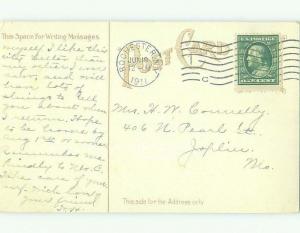 This Space for Writing Messages
POST CARD
ROCHESTER, N.Y.
JUN
1911
C
myself I like this
city better than
any other I ever
saw, and will
have lots of
things to tell
you about when
I return. Hope
to be home by
Aug 1st or sooner
remember me
kindly to Mrs. C.
Take care of your
With love
your friend
Mrs. H. W. Connelly,
406 N. Pearl St.
Joplin,
Mo.
This side for the Address only